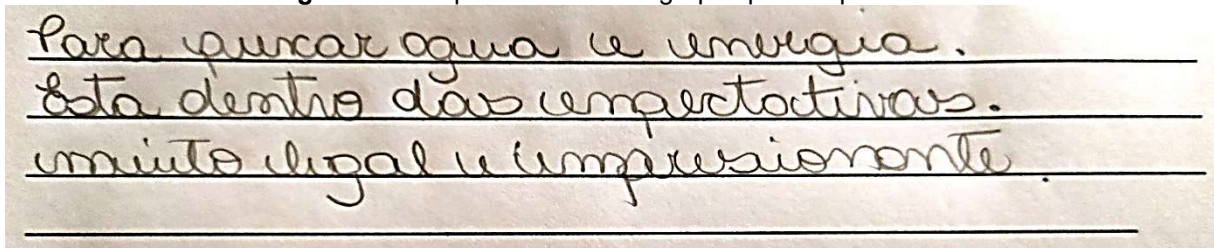 Para puxar agua e energia.
Esta dentro das empectativas.
muito legal e impresionante.